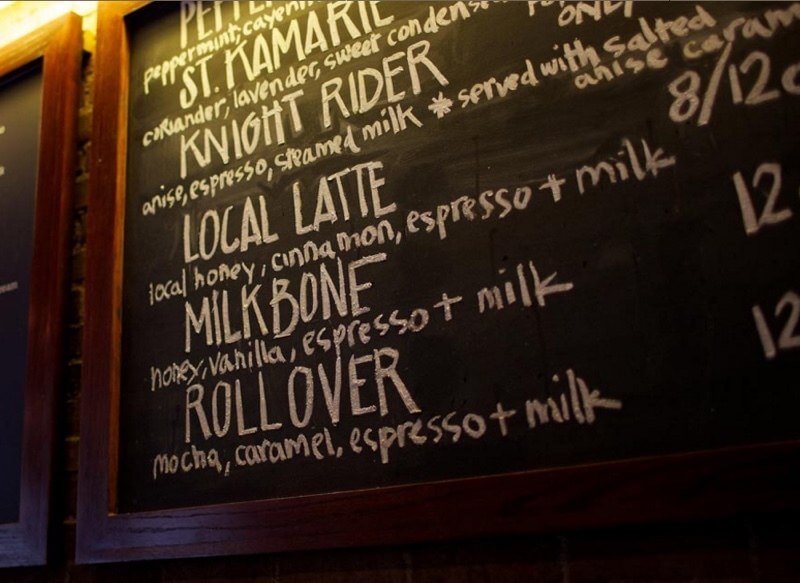 peppermint,
ONLY
ST. KAMARIE
coriander, lavender, sweet
KNIGHT RIDER
anise, espresso, steamed milk * served with salted
anise caram
8/12o
LOCAL LATTE
local honey, cinnamon, espresso + milk
12
MILKBONE
honey, vanilla, espresso + milk
12
ROLLOVER
mocha, caramel, espresso + milk